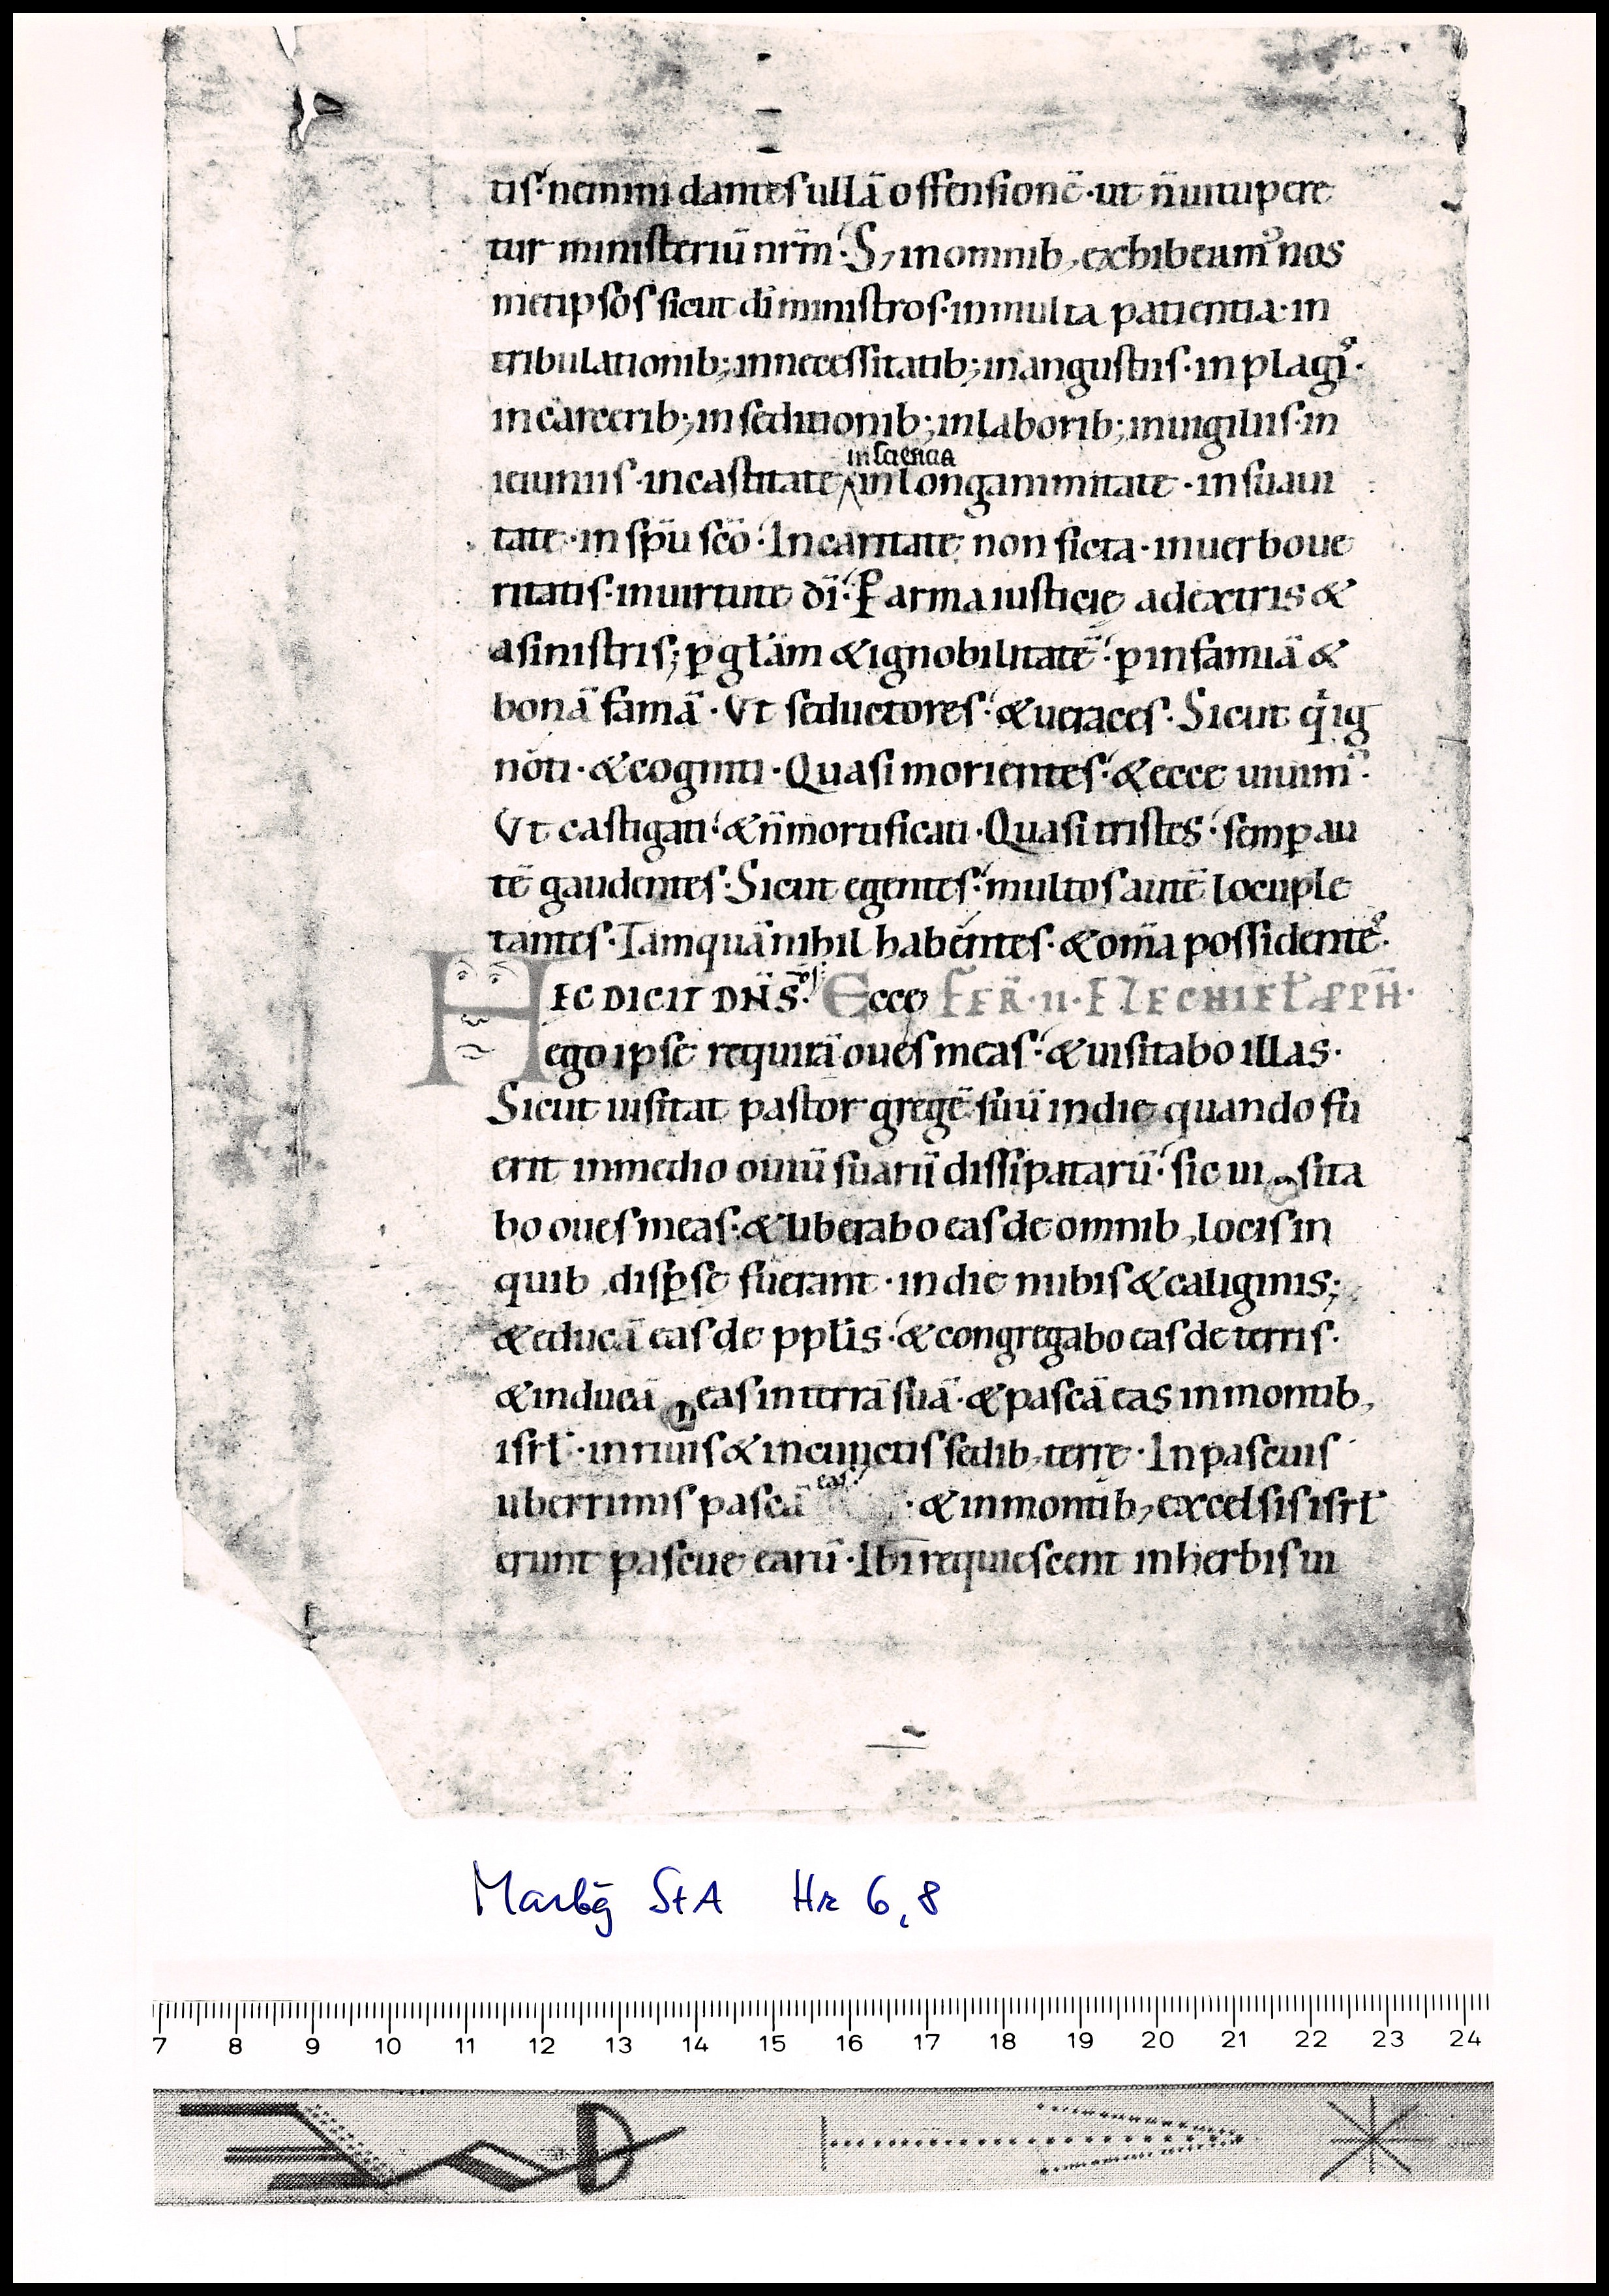 tis· nemini dantes ullā offensionē· ut n̄ uitupere
tur ministeriū nr̄m· S; in omnib; exhibeam᷒ nos
metipsos sicut dī ministros· in multa patientia· in
tribulationib; in necessitatib; in angustiis· in plagis·
in carcerib; in seditionib; in laborib; in uigiliis· in
in sciencia
ieiuniis· in castitate in longanimitate· in suaui
tate· in sp̄u scō· In caritate non ficta· in uerbo ue
ritatis· in uirtute dī· P̲ arma iusticie adextris &
asinistris; p̲ głam & ignobilitatē· p̲ infamiā &
bonā famā· Ut seductores· & ueraces· Sicut qͥ ig
noti· & cogniti· Quasi morientes· & ecce uiuim᷒·
Ut castigati· & n̄ mortificati· Quasi tristes· semp̲ au
tē gaudentes· Sicut egentes· multos autē locuple
tantes· Tamquā nihil habentes· & om̄a possidentes·
HEC DICIT DN̄S ds̄· Ecce FER̄·II· EZECHIEŁ PPH̄·
ego ipse requirā oues meas· & uisitabo illas·
Sicut uisitat pastor gregē suū in die quando fu
erit in medio ouiū suarū dissipatarū· sic ui sita
bo oues meas· & liberabo eas de omnib; locis in
quib; disp̲se fuerant· in die nubis & caliginis;
& educā eas de ppłis· & congregabo eas de terris·
& inducā eas in terrā suā· & pascā eas in montib;
isrł· in riuis & in cunctis sedib; terre· In pascuis
uberrimis pascā eas· & in montib; excelsis isrł
erunt pascue earū· Ibi requiescent in herbis ui
Marbg StA Hr 6,8
7 8 9 10 11 12 13 14 15 16 17 18 19 20 21 22 23 24